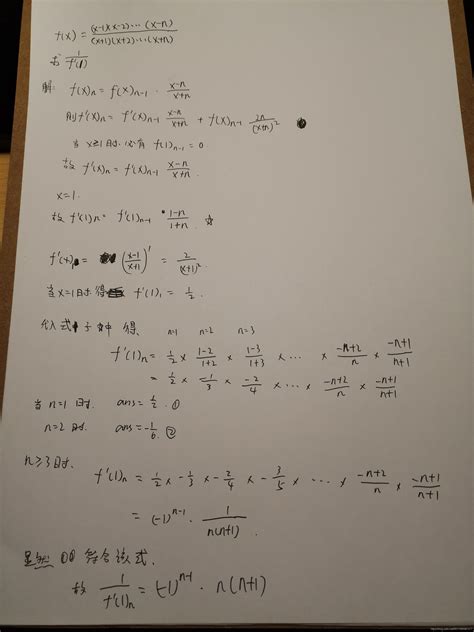 f(x) = (x-1)(x-2)⋯(x-n) / (x+1)(x+2)⋯(x+n)
求 1/f'(1)
解: f(x)n = f(x)n-1 · (x-n)/(x+n)
则 f'(x)n = f'(x)n-1 (x-n)/(x+n) + f(x)n-1 2n/(x+n)²
当 x=1 时, 必有 f(1)n-1 = 0
故 f'(x)n = f'(x)n-1 (x-n)/(x+n).
x=1.
故 f'(1)n = f'(1)n-1 · (1-n)/(1+n). ☆
f'(x)1 = ((x-1)/(x+1))' = 2/(x+1)²
当x=1时 得 f'(1)1 = 1/2.
代入式子☆中 得, n=1 n=2 n=3
f'(1)n = 1/2 × (1-2)/(1+2) × (1-3)/(1+3) × ⋯ × (-n+2)/n × (-n+1)/(n+1)
= 1/2 × -1/3 × -2/4 × ⋯ × (-n+2)/n × (-n+1)/(n+1)
当 n=1 时. ans = 1/2. ①
n=2 时. ans = -1/6. ②
n≥3时.
f'(1)n = 1/2 × -1/3 × -2/4 × -3/5 × ⋯ × (-n+2)/n × (-n+1)/(n+1)
= (-1)^(n-1) · 1/(n(n+1)).
显然 ①② 符合该式.
故 1/f'(1)n = (-1)^(n-1) · n(n+1)